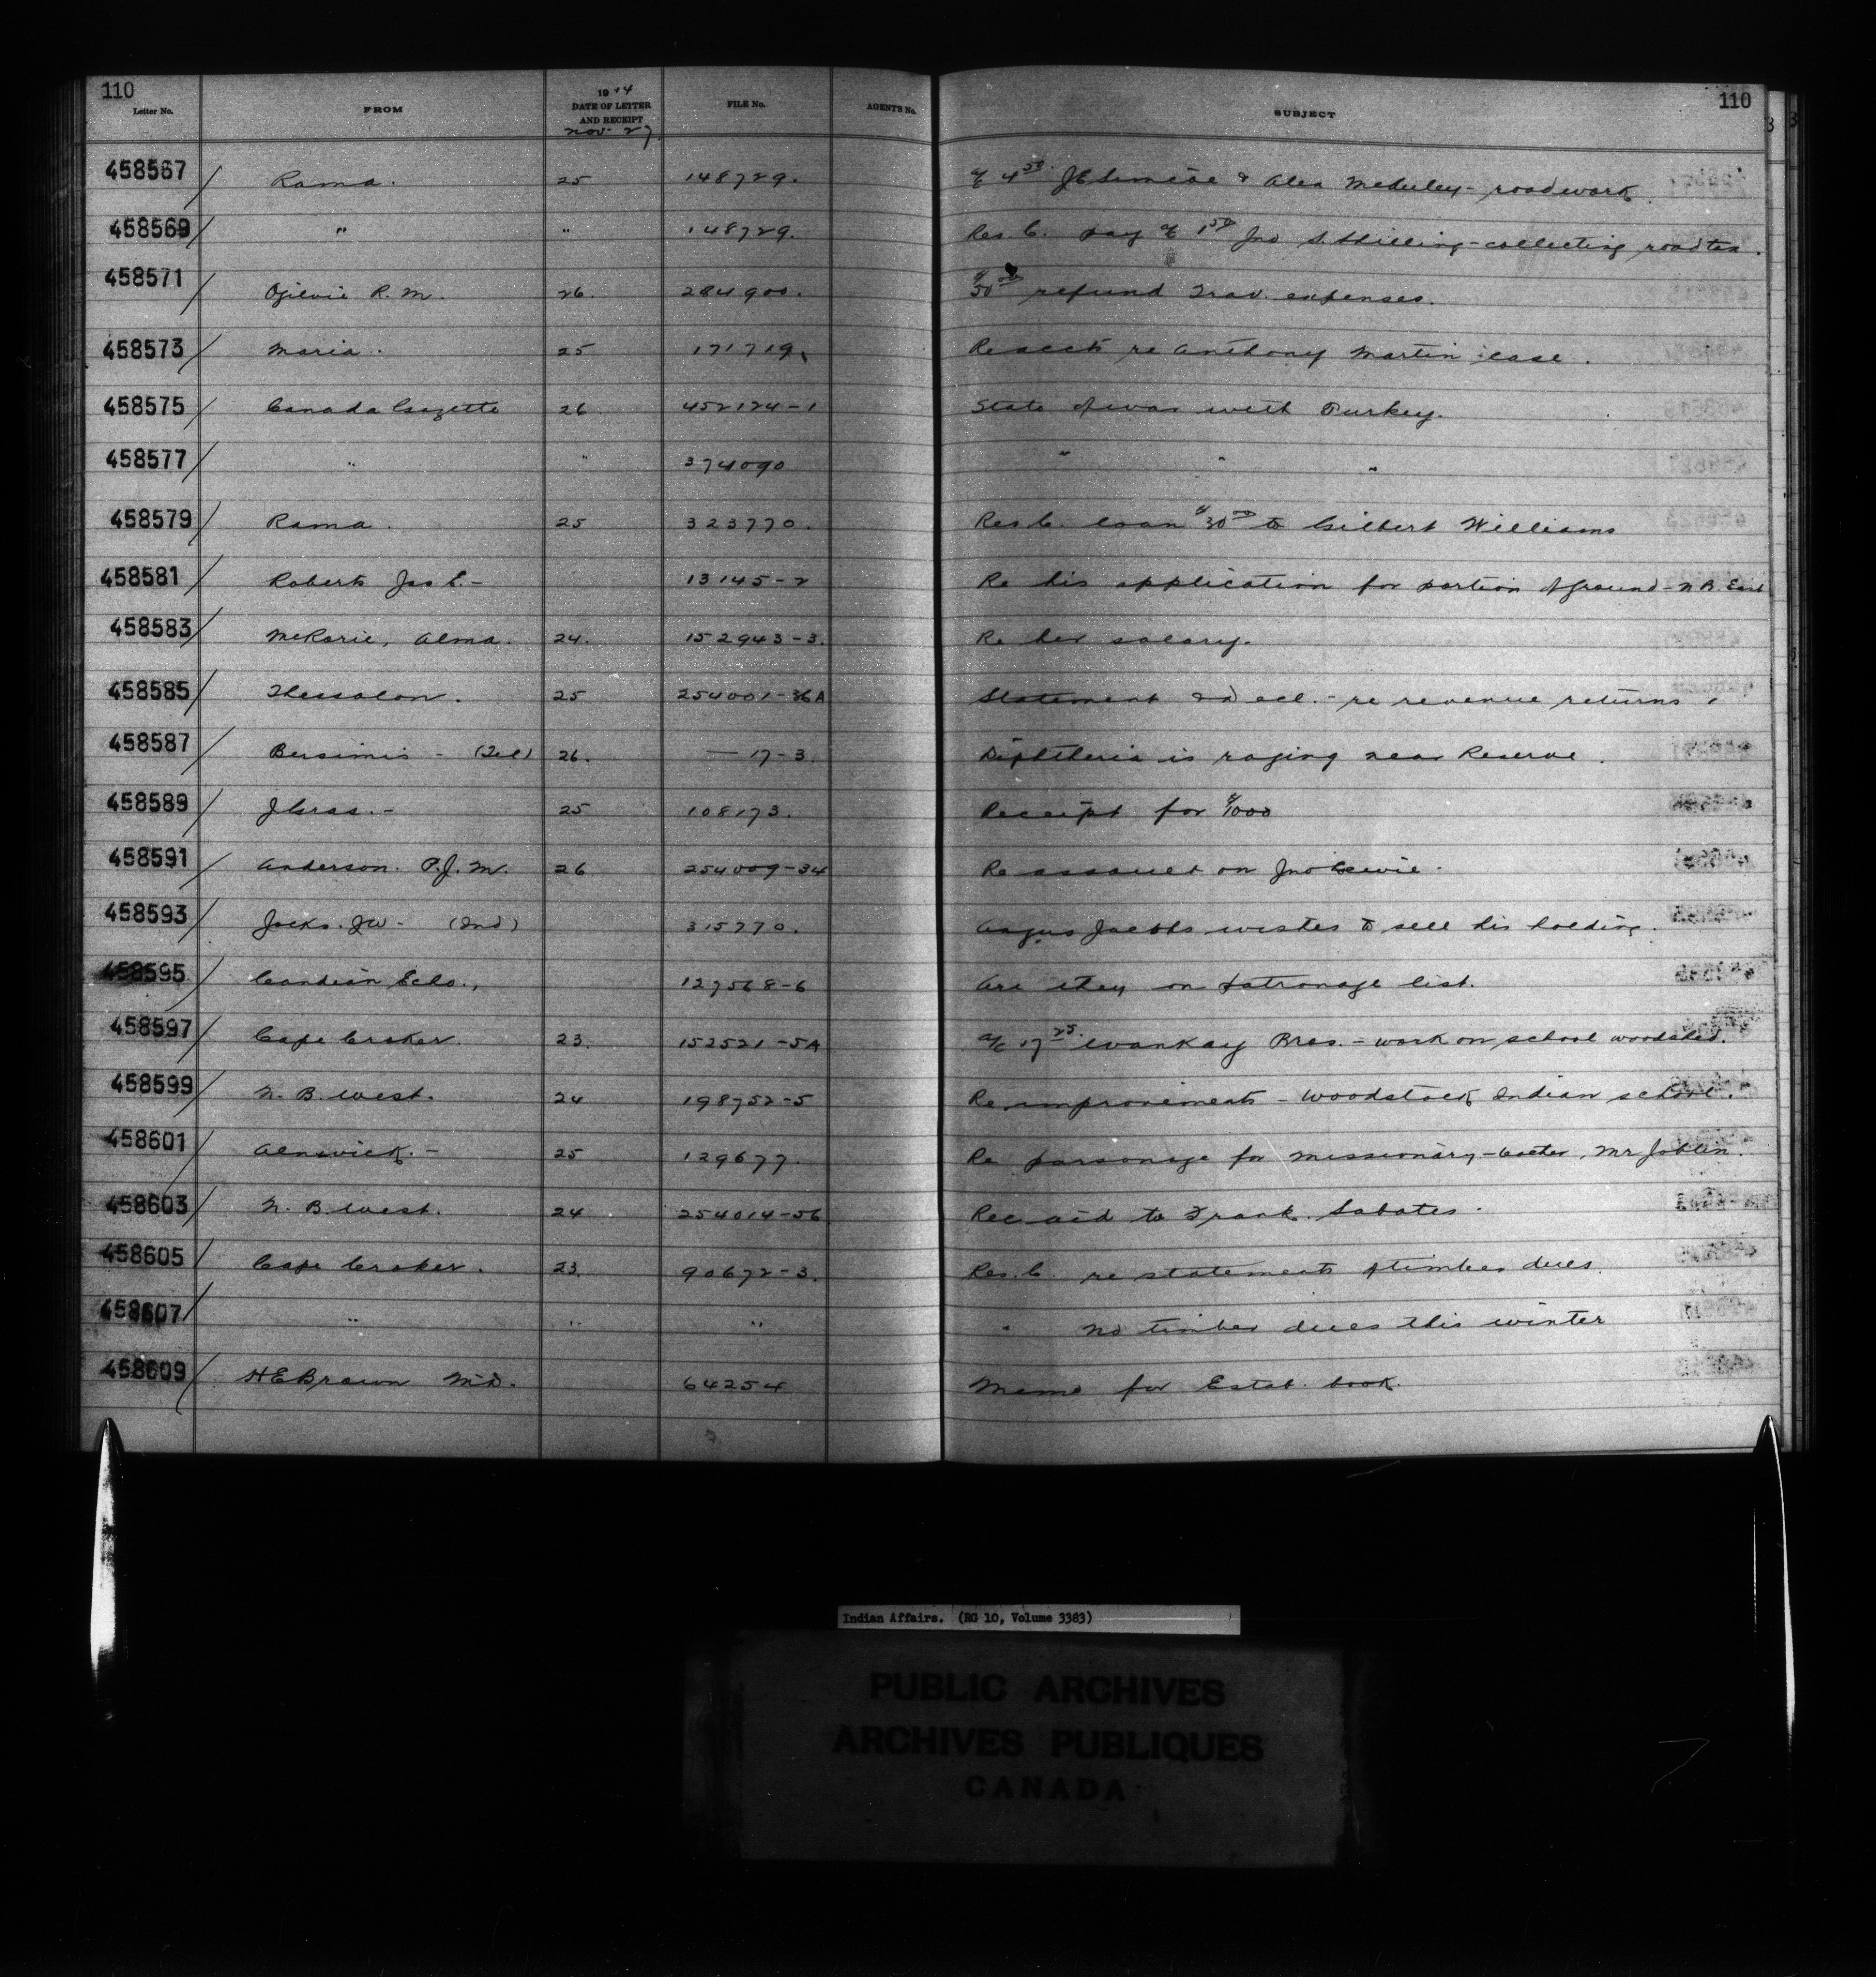 110 110
Letter No. FROM 1914 DATE OF LETTER AND RECEIPT FILE No. AGENT'S No. SUBJECT
Nov. 27.
458567 / Rama. 25 148729. a/c 4 50. & Alex roadwork.
458569 / " " 148729. Res. C. pay a/c 1 50 Jno S. Shilling - collecting road tax.
458571 / Ogilvie R. M. 26. 284900. $50 00 refund Trav. expenses.
458573 / Maria. 25 171719. re Anthony Martin case.
458575 / Canada Gazette 26 452124-1 State of war with Turkey.
458577 / " " 374090 " " "
458579 / Rama. 25 323770. Res C. loan $30 00 to Gilbert Williams
458581 / Roberts Jas E. - 13145-2 Re his application for portion of ground - N. B. East
458583 / McRorie, Alma. 24. 152943-3. Re her salary.
458585 / Thessalon. 25 254001-36A Statement - re revenue returns.
458587 / Bersimis - (Tel) 26. — 17-3. Diphtheria is raging near Reserve.
458589 / J Gras. - 25 108173. Receipt for $1000
458591 / Anderson. P. J. M. 26 254009-34 Re assault on Jno
458593 / Jocks. JW - (Ind) 315770. Angus Jacobs wishes to sell his holding.
458595 / Echo., 127568-6 Are they on patronage list.
458597 / Cape Croker. 23. 152521-5A a/c 17 25. Bros. - work on school woodshed.
458599 / N. B. West. 24 198752-5 Re improvements - Woodstock Indian school.
458601 / Alnwick. - 25 129677. Re parsonage for missionary - , Mr Joblin.
458603 / N. B. West. 24 254014-56 Rec aid to Frank. Sabates.
458605 / Cape Croker. 23. 90672-3. Res. C. re statements of timber dues.
458607 / " " " " No timber dues this winter
458609 / H E Brown M.D. 64254 Memo for Estab. book.
Indian Affairs. (RG 10, Volume 3383)
PUBLIC ARCHIVES
ARCHIVES PUBLIQUES
CANADA